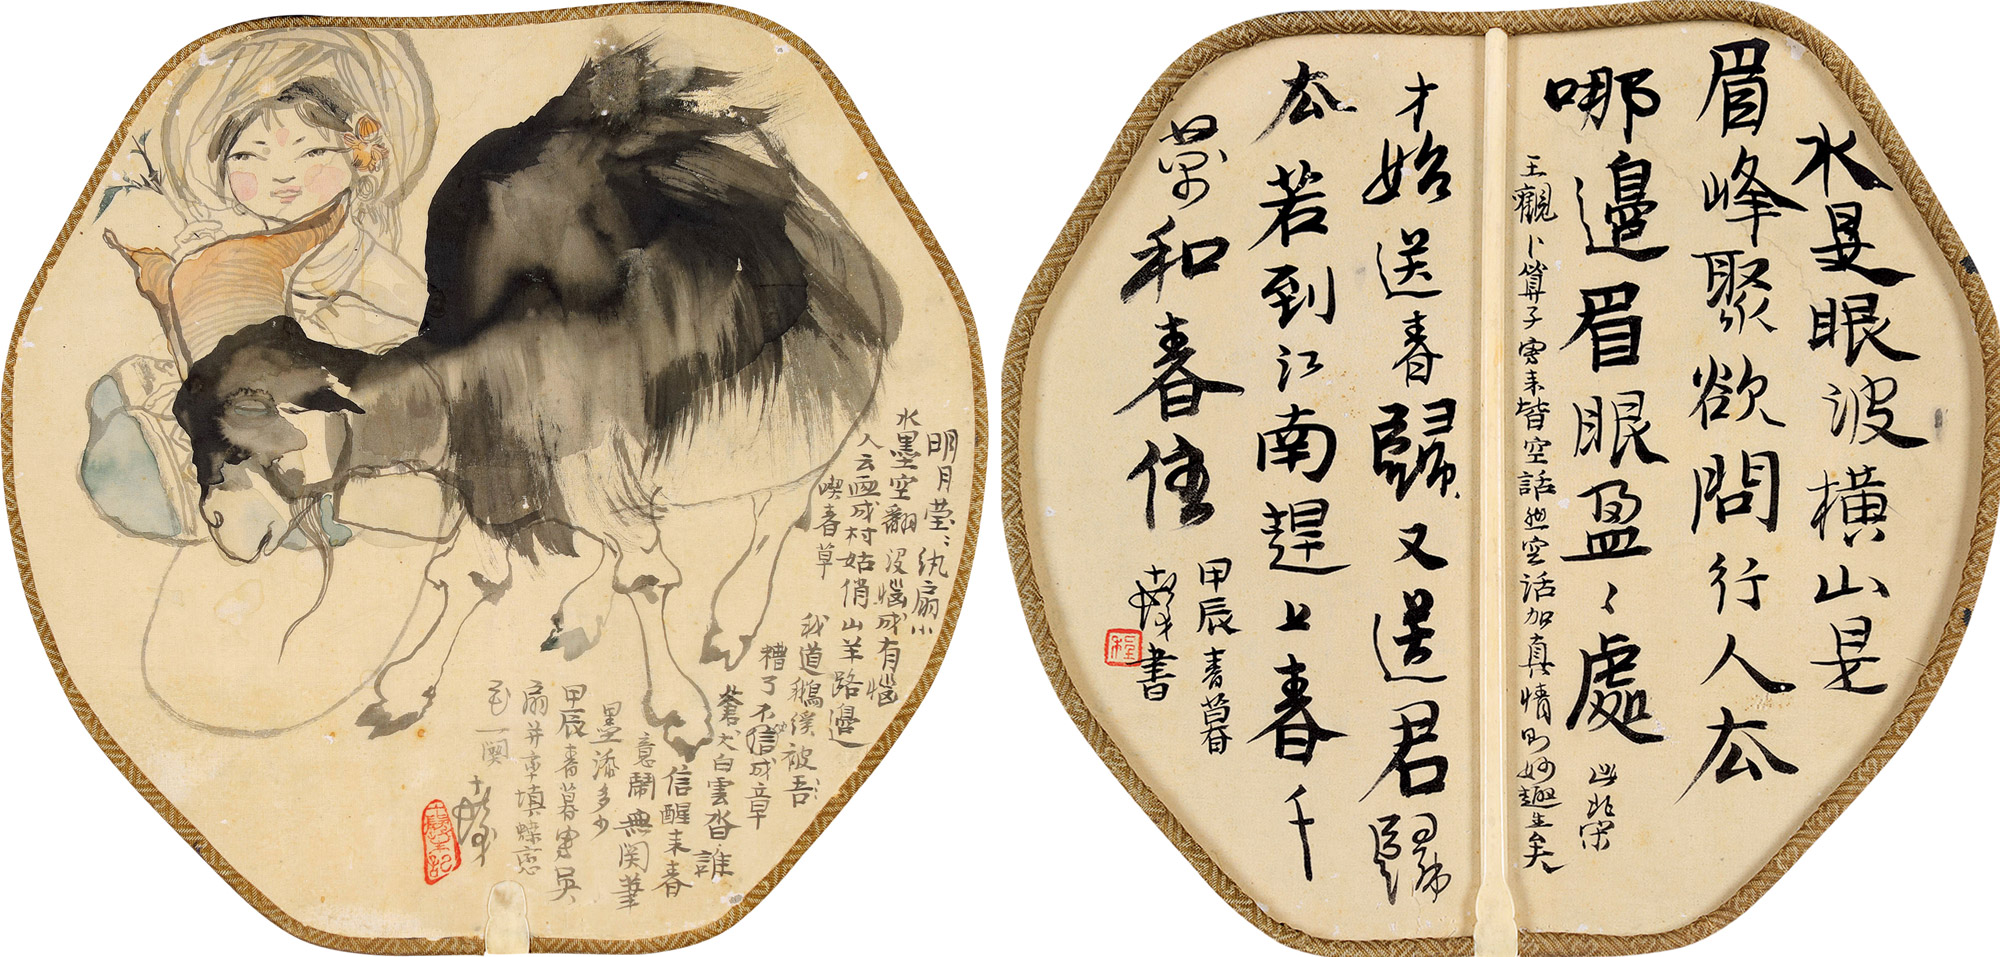 明月莹〻纨扇小
水墨空翻没惱成有惱
人云画成村姑俏山羊路邉
喫春草
我道鵝溪被吾〻
糟了不信成章
蒼犬白雲沓誰
信醒来春
意鬧無関筆
墨添多少
甲辰春暮寫吳
扇并率填蝶恋
花一阕
十髮
水是眼波橫山是
眉峰聚欲問行人厺
哪邉眉眼盈〻處
此北宋
王觀卜算子寫来皆空話然空话加真情則妙趣生矣
才始送春歸又送君歸
厺若到江南趕上春千
萬和春住
甲辰春暮
十髮書
程